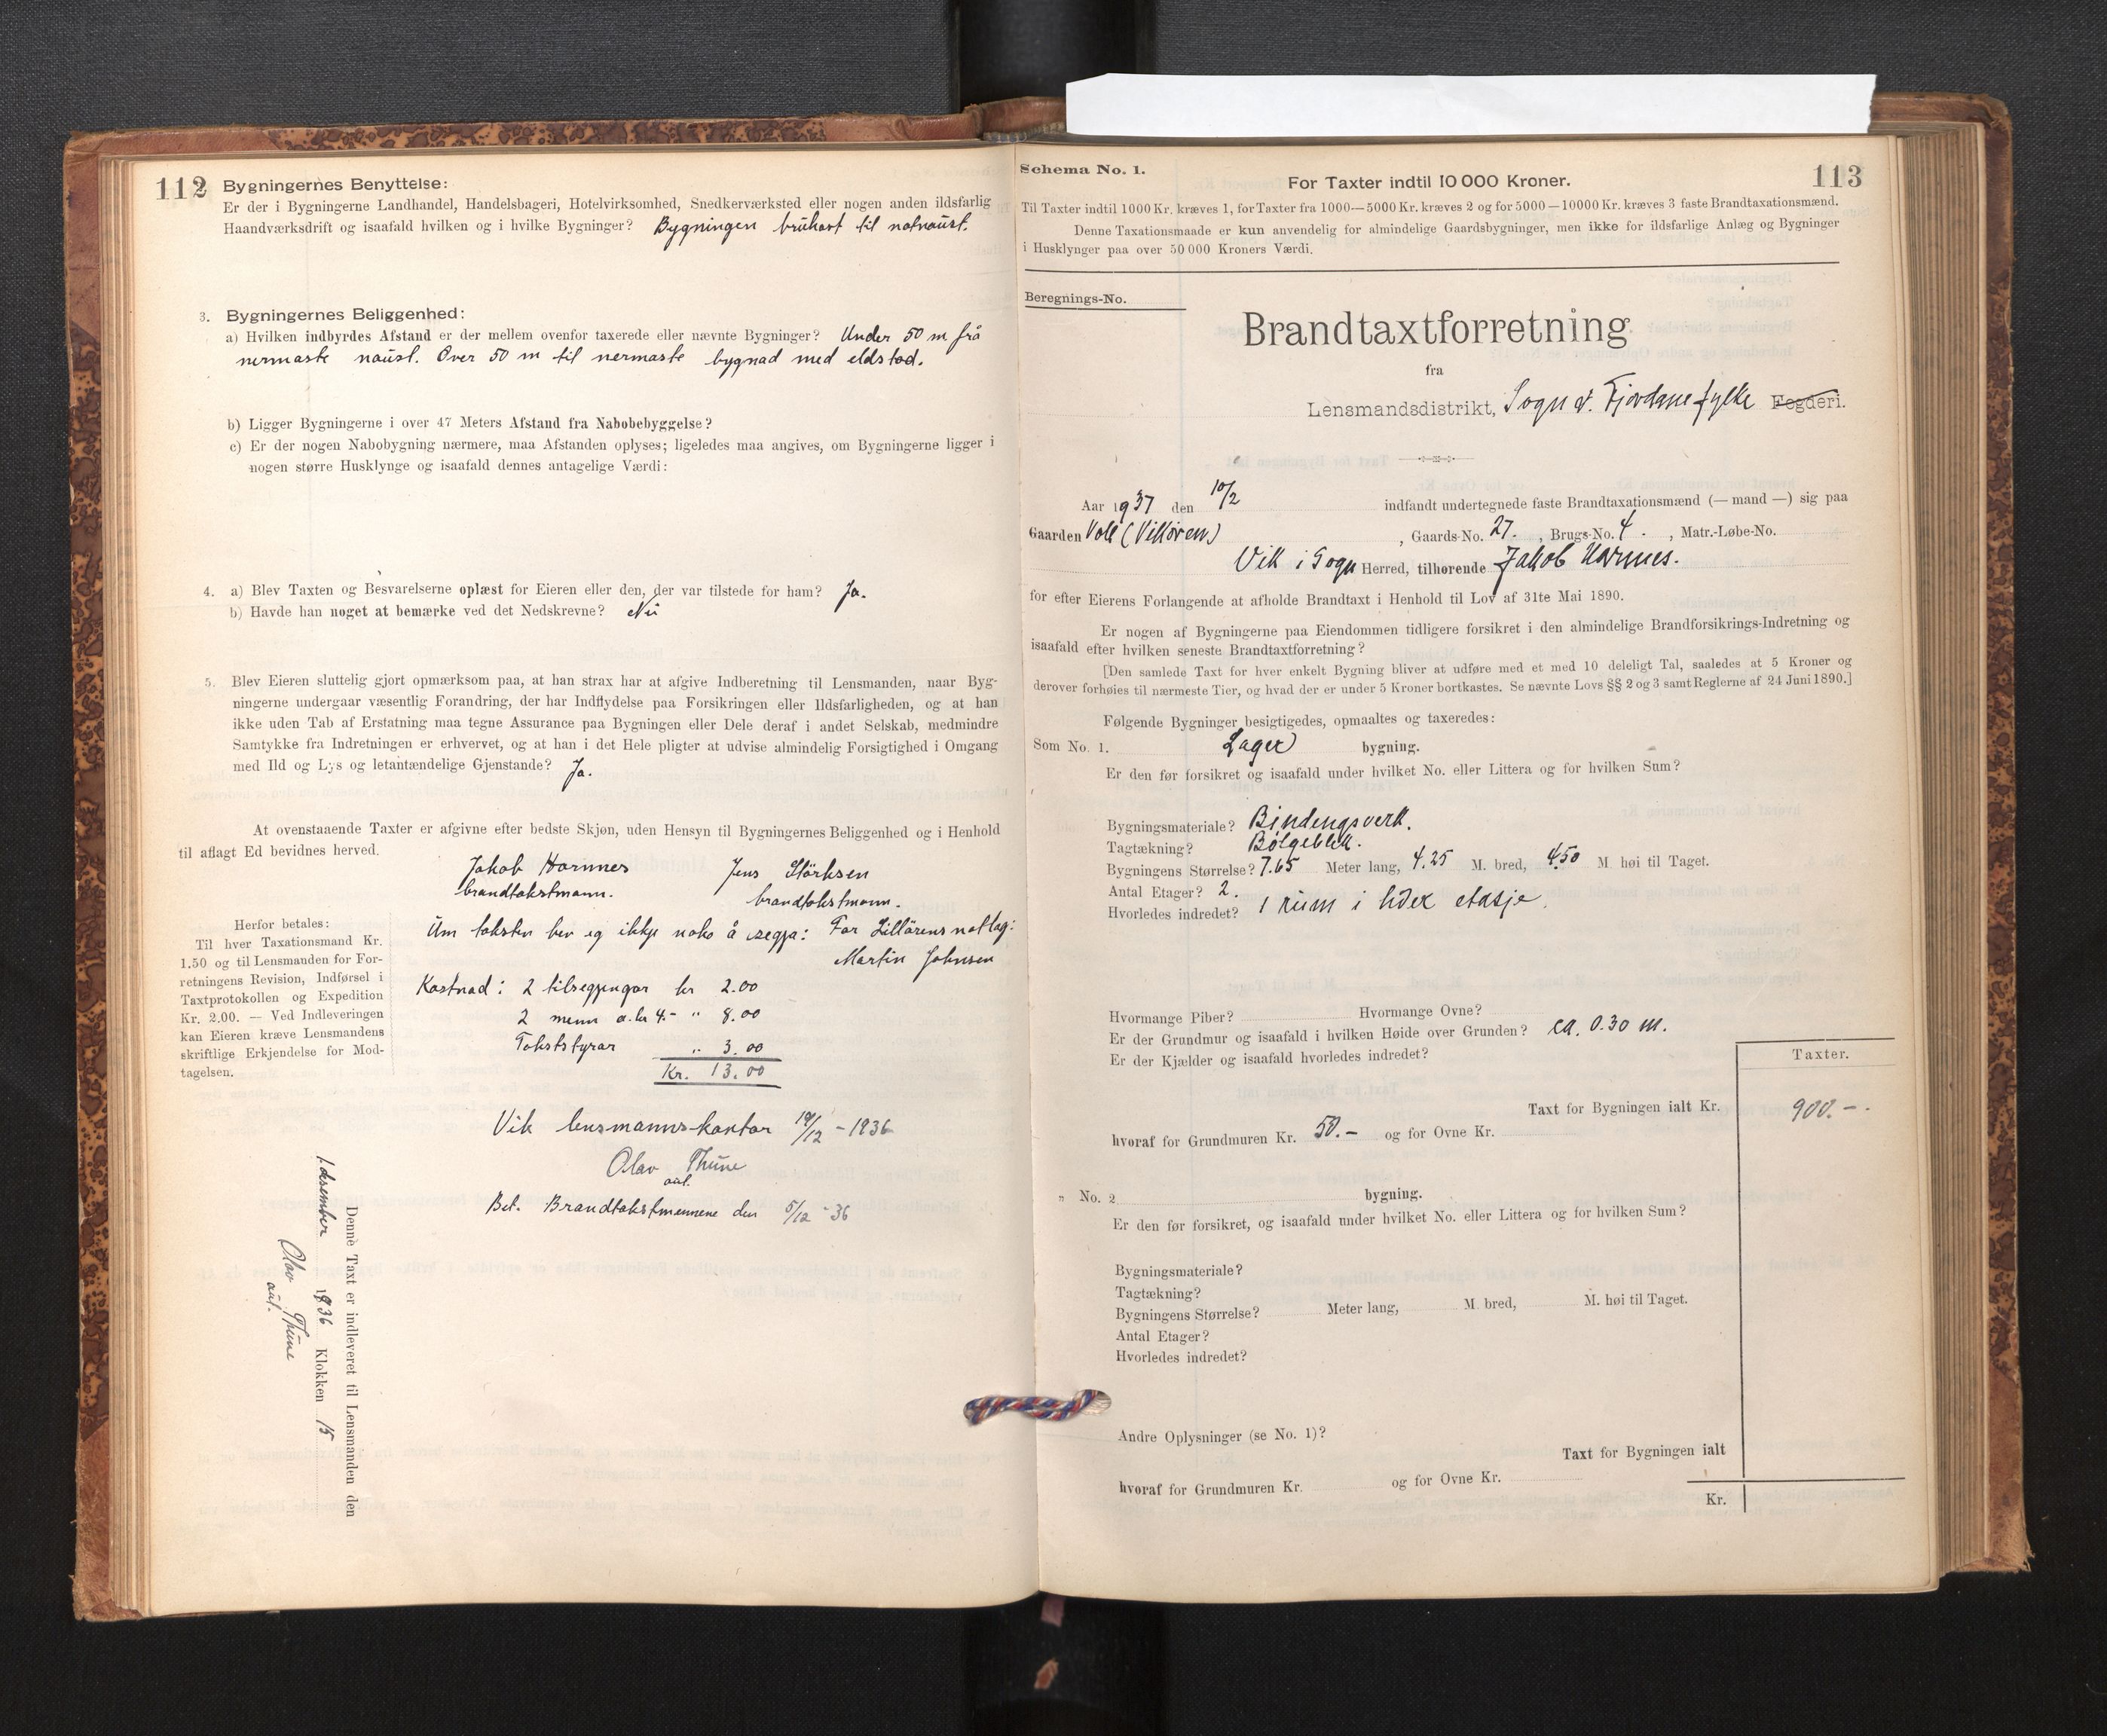 112
Bygningernes Benyttelse:
Er der i Bygningerne Landhandel, Handelsbageri, Hotelvirksomhed, Snedkerværksted eller nogen anden ildsfarlig
Haandværksdrift og isaafald hvilken og i hvilke Bygninger? Bygningen brukast til notnaust.
3. Bygningernes Beliggenhed:
a) Hvilken indbyrdes Afstand er der mellem ovenfor taxerede eller nævnte Bygninger? Under 50 m frå
nermaste naust. Over 50 m til nermaste bygnad med eldstad.
b) Ligger Bygningerne i over 47 Meters Afstand fra Nabobebyggelse?
c) Er der nogen Nabobygning nærmere, maa Afstanden oplyses; ligeledes maa angives, om Bygningerne ligger i
nogen større Husklynge og isaafald dennes antagelige Værdi:
4. a) Blev Taxten og Besvarelserne oplæst for Eieren eller den, der var tilstede for ham? Ja.
b) Havde han noget at bemærke ved det Nedskrevne? Nei
5. Blev Eieren sluttelig gjort opmærksom paa, at han strax har at afgive Indberetning til Lensmanden, naar Byg-
ningerne undergaar væsentlig Forandring, der har Indflydelse paa Forsikringen eller Ildsfarligheden, og at han
ikke uden Tab af Erstatning maa tegne Assurance paa Bygningen eller Dele deraf i andet Selskab, medmindre
Samtykke fra Indretningen er erhvervet, og at han i det Hele pligter at udvise almindelig Forsigtighed i Omgang
med Ild og Lys og letantændelige Gjenstande? Ja.
At ovenstaaende Taxter er afgivne efter bedste Skjøn, uden Hensyn til Bygningernes Beliggenhed og i Henhold
til aflagt Ed bevidnes herved.
Jakob Hovmnes Jens Størksen
brandtakstmann. brandtakstmann.
Um taksten hev eg ikkje noko å segja: For notlag:
Martin Johnsen
Herfor betales:
Til hver Taxationsmand Kr.
1.50 og til Lensmanden for For-
retningens Revision, Indførsel i
Taxtprotokollen og Expedition
Kr. 2.00. — Ved Indleveringen
kan Eieren kræve Lensmandens
skriftlige Erkjendelse for Mod-
tagelsen.
Kostnad: 2 tilsegjingar kr 2.00
2 menn a. kr 4.- " 8.00
Takststyrar " 3.00
Kr. 13.00
Vik lensmannskontor 19/12 - 1936
Olav Thune
aut.
Bet. Brandtakstmennene den 5/12 - 36
Denne Taxt er indleveret til Lensmanden den
1. desember 1936 Klokken 15
Olav Thune
aut.
Schema No. 1.
For Taxter indtil 10 000 Kroner.
113
Til Taxter indtil 1000 Kr. kræves 1, for Taxter fra 1000—5000 Kr. kræves 2 og for 5000—10000 Kr. kræves 3 faste Brandtaxationsmænd.
Denne Taxationsmaade er kun anvendelig for almindelige Gaardsbygninger, men ikke for ildsfarlige Anlæg og Bygninger
i Husklynger paa over 50 000 Kroners Værdi.
Beregnings-No.
Brandtaxtforretning
fra
Lensmandsdistrikt, Sogn o. Fjordane fylke Fogderi.
Aar 1937 den 10/2 indfandt undertegnede faste Brandtaxationsmænd (— mand —) sig paa
Gaarden Voll (Vikøren), Gaards-No. 27., Brugs-No. 4., Matr.-Løbe-No.
Vik i Sogn Herred, tilhørende Jakob
for efter Eierens Forlangende at afholde Brandtaxt i Henhold til Lov af 31te Mai 1890.
Er nogen af Bygningerne paa Eiendommen tidligere forsikret i den almindelige Brandforsikrings-Indretning og
isaafald efter hvilken seneste Brandtaxtforretning?
[Den samlede Taxt for hver enkelt Bygning bliver at udføre med et med 10 deleligt Tal, saaledes at 5 Kroner og
derover forhøies til nærmeste Tier, og hvad der er under 5 Kroner bortkastes. Se nævnte Lovs §§ 2 og 3 samt Reglerne af 24 Juni 1890.]
Følgende Bygninger besigtigedes, opmaaltes og taxeredes:
Som No. 1. Lager bygning.
Er den før forsikret og isaafald under hvilket No. eller Littera og for hvilken Sum?
Bygningsmateriale? Bindingsverk.
Tagtækning? Bølgeblek.
Bygningens Størrelse? 7.65 Meter lang, 4.25 M. bred, 4.50 M. høi til Taget.
Antal Etager? 2.
Hvorledes indredet? 1 rum i hver etasje.
Hvormange Piber? Hvormange Ovne?
Er der Grundmur og isaafald i hvilken Høide over Grunden? ca. 0.30 m.
Er der Kjælder og isaafald hvorledes indredet?
Taxter.
Taxt for Bygningen ialt Kr. 900.-.
hvoraf for Grundmuren Kr. 50.- og for Ovne Kr.
" No. 2 bygning.
Er den før forsikret, og isaafald under hvilket No. eller Littera og for hvilken Sum?
Bygningsmateriale?
Tagtækning?
Bygningens Størrelse? Meter lang, M. bred, M. høi til Taget.
Antal Etager?
Hvorledes indredet?
Andre Oplysninger (se No. 1)?
Taxt for Bygningen ialt
hvoraf for Grundmuren Kr. og for Ovne Kr.
Kr.